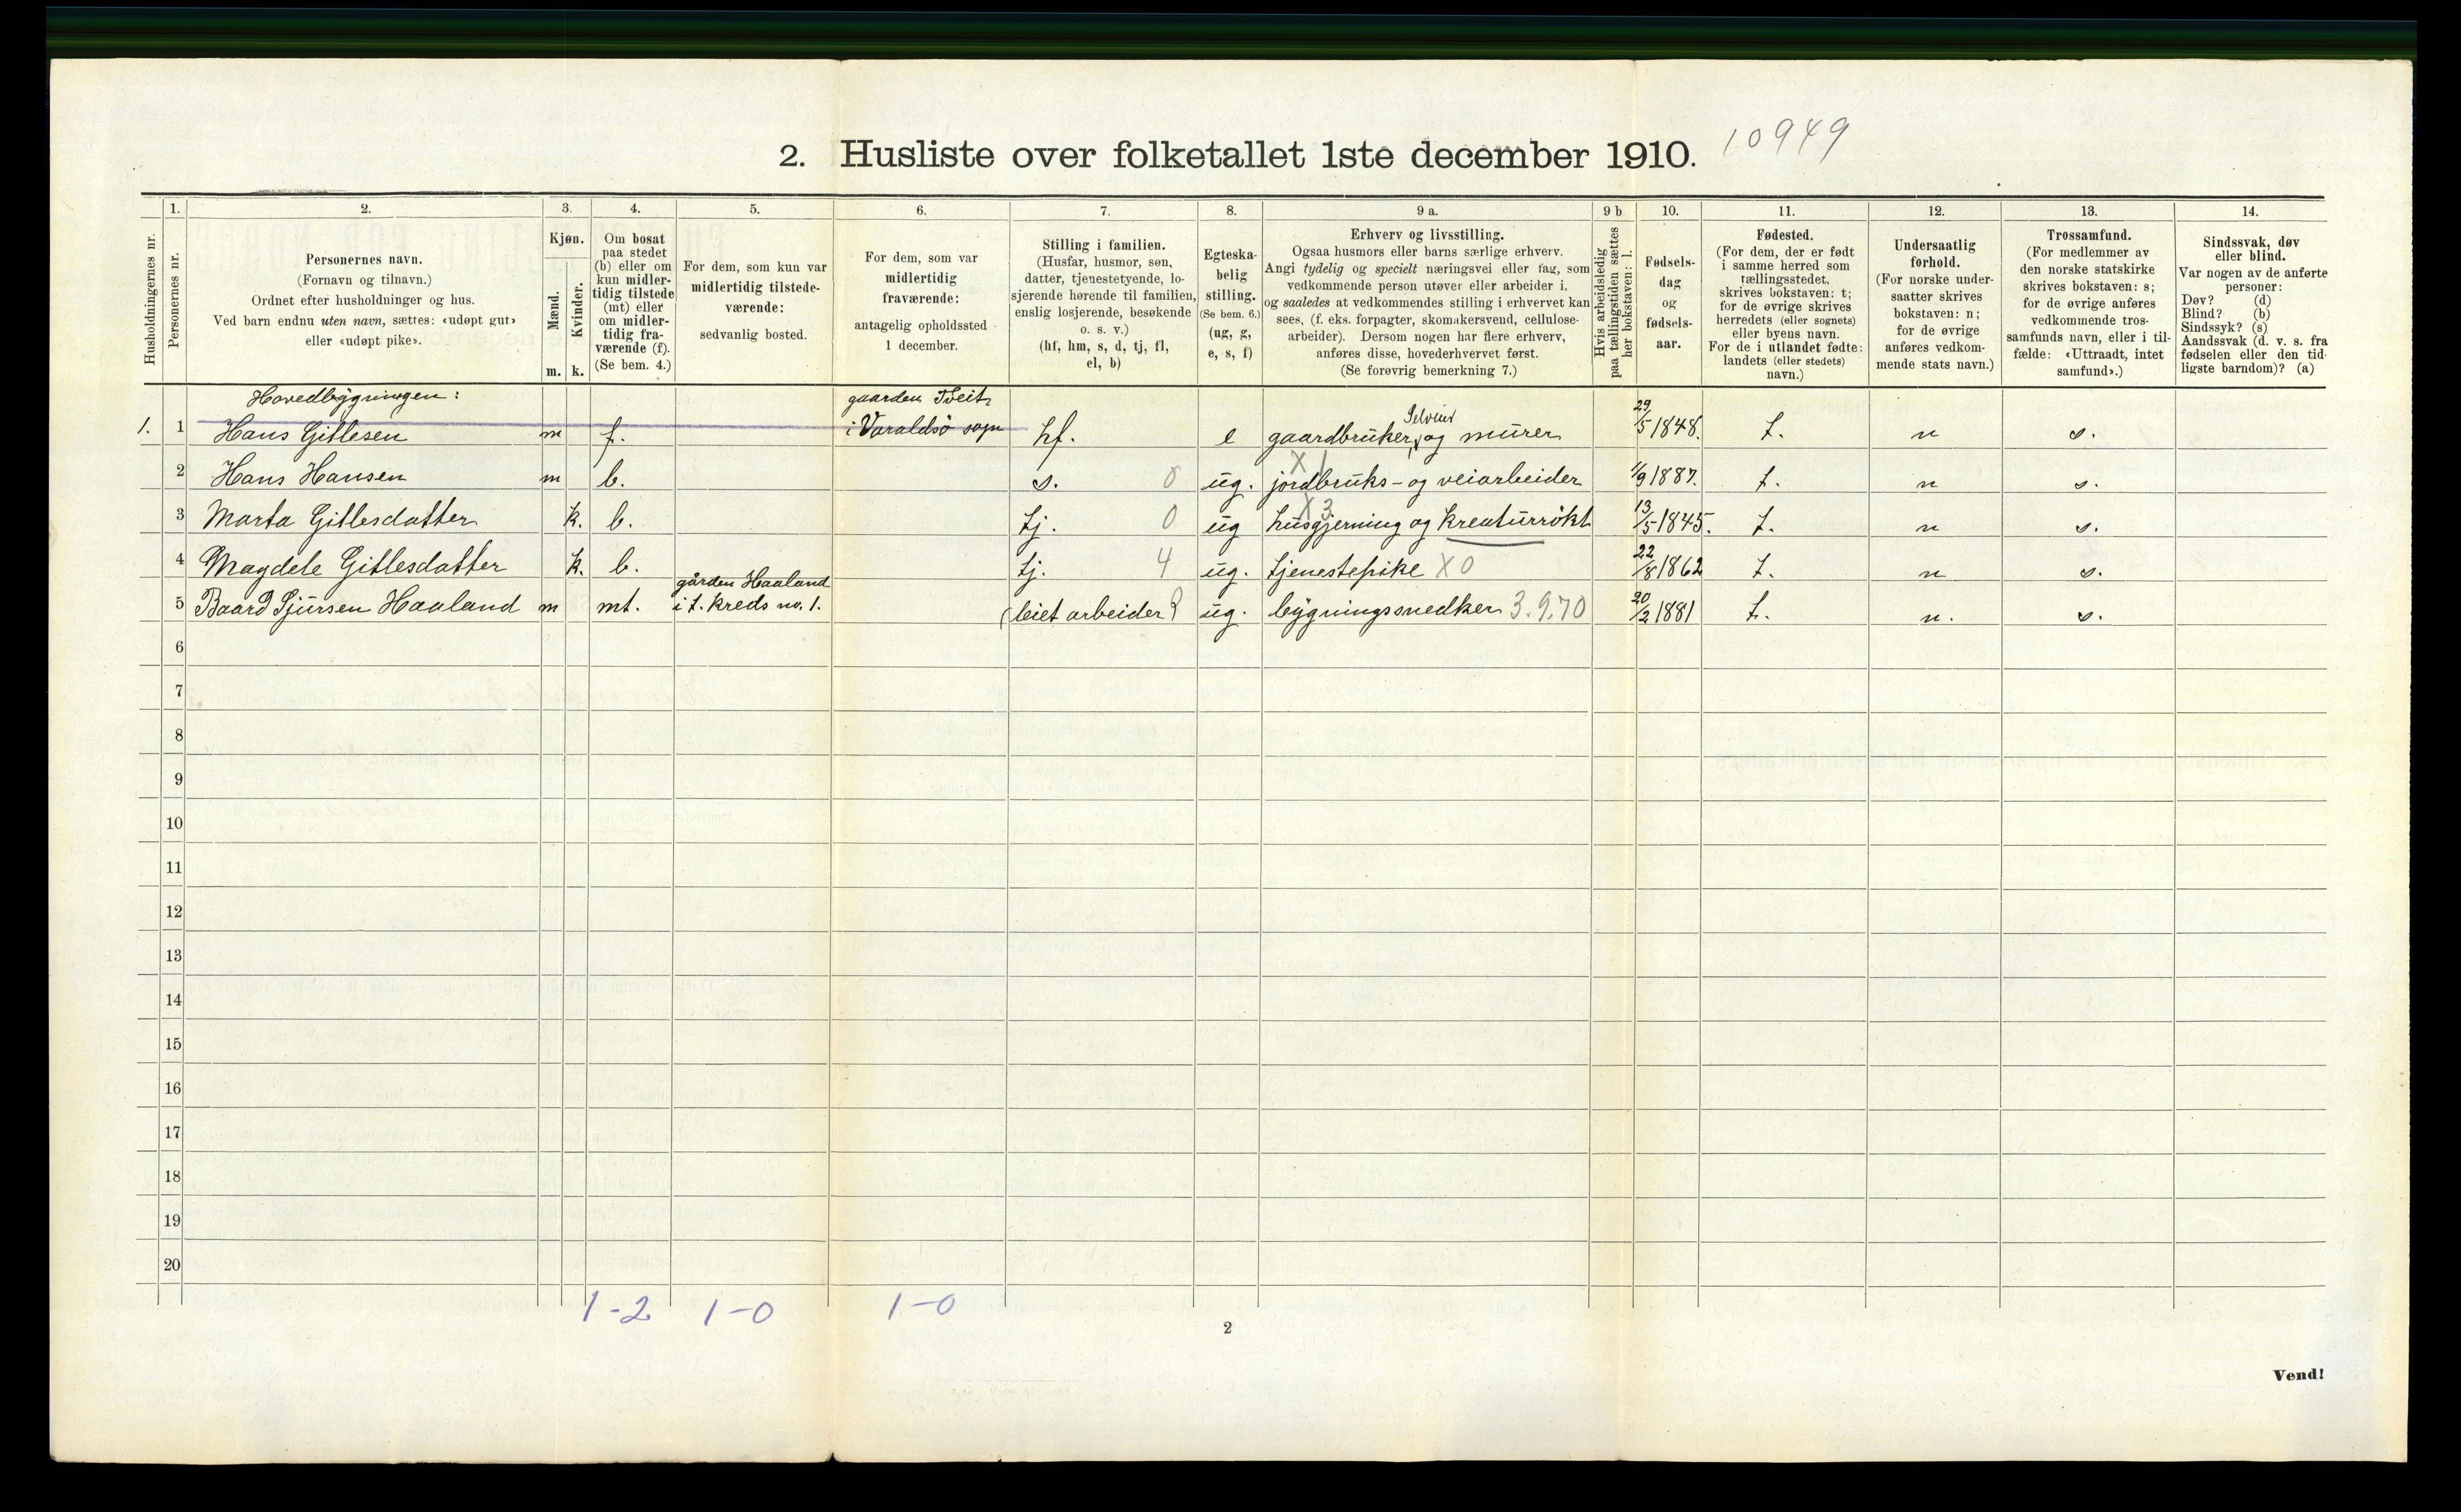 10949
2. Husliste over folketallet 1ste december 1910.
Husholdningernes nr.
1.
Personernes nr.
2.
Personernes navn.
(Fornavn og tilnavn.)
Ordnet efter husholdninger og hus.
Ved barn endnu uten navn, sættes: «udøpt gut»
eller «udøpt pike».
3.
Kjøn.
Mænd.
Kvinder.
m. k.
4.
Om bosat
paa stedet
(b) eller om
kun midler-
tidig tilstede
(mt) eller
om midler-
tidig fra-
værende (f).
(Se bem. 4.)
5.
For dem, som kun var
midlertidig tilstede-
værende:
sedvanlig bosted.
6.
For dem, som var
midlertidig
fraværende:
antagelig opholdssted
1 december.
7.
Stilling i familien.
(Husfar, husmor, søn,
datter, tjenestetyende, lo-
sjerende hørende til familien,
enslig losjerende, besøkende
o. s. v.)
(hf, hm, s, d, tj, fl,
el, b)
8.
Egteska-
belig
stilling.
(Se bem. 6.)
(ug, g,
e, s, f)
9 a.
Erhverv og livsstilling.
Ogsaa husmors eller barns særlige erhverv.
Angi tydelig og specielt næringsvei eller fag, som
vedkommende person utøver eller arbeider i,
og saaledes at vedkommendes stilling i erhvervet kan
sees, (f. eks. forpagter, skomakersvend, cellulose-
arbeider). Dersom nogen har flere erhverv,
anføres disse, hovederhvervet først.
(Se forøvrig bemerkning 7.)
9 b
Hvis arbeidsledig
paa tællingstiden sættes
her bokstaven: l.
10.
Fødsels-
dag
og
fødsels-
aar.
11.
Fødested.
(For dem, der er født
i samme herred som
tællingsstedet,
skrives bokstaven: t;
for de øvrige skrives
herredets (eller sognets)
eller byens navn.
For de i utlandet fødte:
landets (eller stedets)
navn.)
12.
Undersaatlig
forhold.
(For norske under-
saatter skrives
bokstaven: n;
for de øvrige
anføres vedkom-
mende stats navn.)
13.
Trossamfund.
(For medlemmer av
den norske statskirke
skrives bokstaven: s;
for de øvrige anføres
vedkommende tros-
samfunds navn, eller i til-
fælde: «Uttraadt, intet
samfund».)
14.
Sindssvak, døv
eller blind.
Var nogen av de anførte
personer:
Døv? (d)
Blind? (b)
Sindssyk? (s)
Aandssvak (d. v. s. fra
fødselen eller den tid-
ligste barndom)? (a)
Hovedbygningen: gaarden Tveit
1. 1 Hans Gitlesen m f. i Varaldsö sogn hf. e gaardbruker, Selveier og murer 29/5 1848. t. n s.
2 Hans Hansen m b. s. 0 ug. jordbruks- og veiarbeider X 1 1/9 1887. t. n s.
3 Marta Gitlesdatter k. b. tj. 0 ug husgjerning og kreaturrökt X 3 13/5 1845. t. n s.
4 Magdele Gitlesdatter k. b. tj. 4 ug. tjenestepike X 0 22/8 1862 t. n s.
gården Haaland
5 Baard Sjursen Haaland m mt. i t. kreds no. 1. (leiet arbeider ug. bygningssnedker 3.9.70 20/2 1881 t. n. s.
6
7
8
9
10
11
12
13
14
15
16
17
18
19
20
1-2 1-0 1-0
2
Vend!